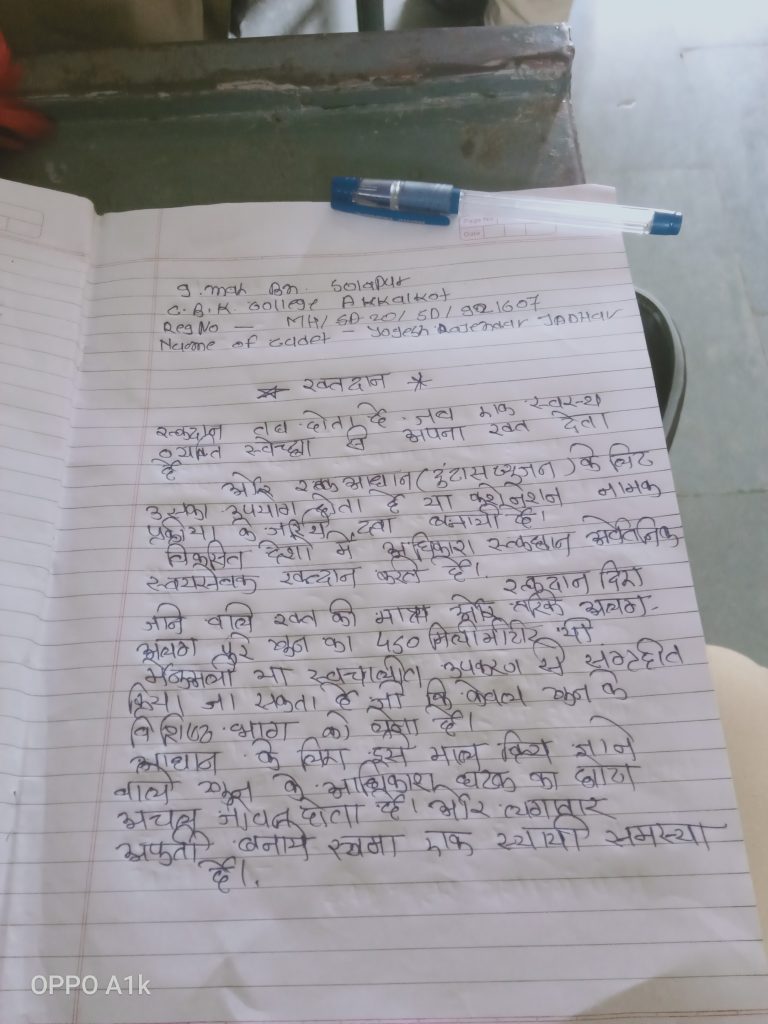 Page No.
Date
9. mah Bn. Solapur
C. B. K. College Akkalkot
Reg No — MH/SD-20/SD/921607
Name of cadet — Yogesh Rajendar JADHAV
रक्तदान
रक्तदान तब होता है. जब एक स्वस्थ
व्यक्ति स्वेच्छा से अपना रक्त देता
है
और रक्त आधान ( के लिए
उसका उपयोग होता है या नामक
के जरिये दवा बनायी है।
विकसित देशो में अधिकाश रक्तदान अवैतनिक
स्वयंसेवक रक्तदान करते है।.
रक्तदान दिए
जाने वाले रक्त की मात्रा और तरिके अलग-
अलग पुरे खुन का 450 मिलीलीटीर या
या स्वचालीत उपकरण से
किया जा सकता है जो कि केवल खुन के
विशिष्ठ भाग को लेता है।
आधान के लिए इसे माल किये जाने
वाले खुन के अधिकाश घटक का छोटा
होता है। और लगातार
बनाये रखना एक स्थायी समस्या
है।.
OPPO A1k